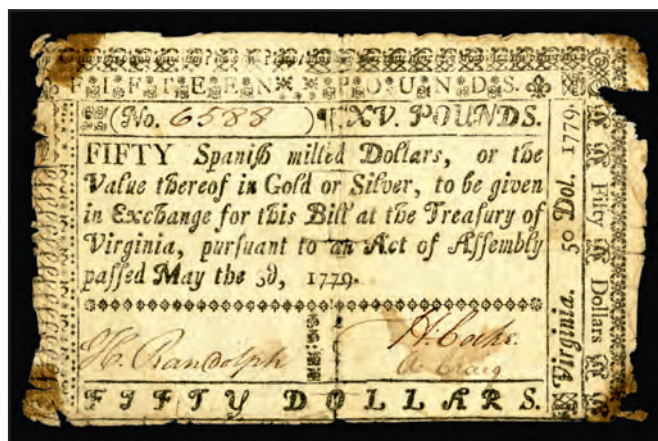 FIFTEEN POUNDS.
(No. 6588) XV. POUNDS.
FIFTY Spanish milled Dollars, or the
Value thereof in Gold or Silver, to be given
in Exchange for this Bill at the Treasury of
Virginia, pursuant to an Act of Assembly
passed May the 3d, 1779.
H. Randolph
H. Cocke.
A Craig
FIFTY DOLLARS.
Virginia. 50 Dol. 1779.
Fifty Dollars